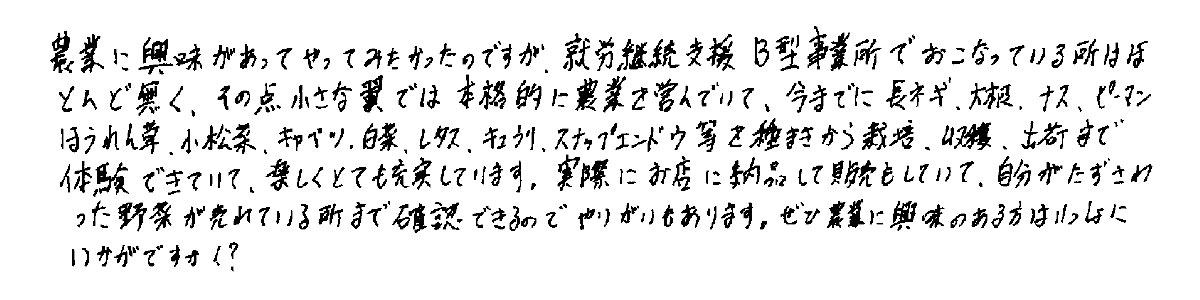 農業に興味があってやってみたかったのですが、就労継続支援B型事業所でおこなっている所はほ
とんど無く、その点小さな翼では本格的に農業を営んでいて、今までに長ネギ、大根、ナス、ピーマン
ほうれん草、小松菜、キャベツ、白菜、レタス、キュウリ、スナップエンドウ等を種まきから栽培、収穫、出荷まで
体験できていて、楽しくとても充実しています。実際にお店に納品して販売もしていて、自分がたずさわ
った野菜が売れている所まで確認できるのでやりがいもあります。ぜひ農業に興味のある方はいっしょに
いかがですか?